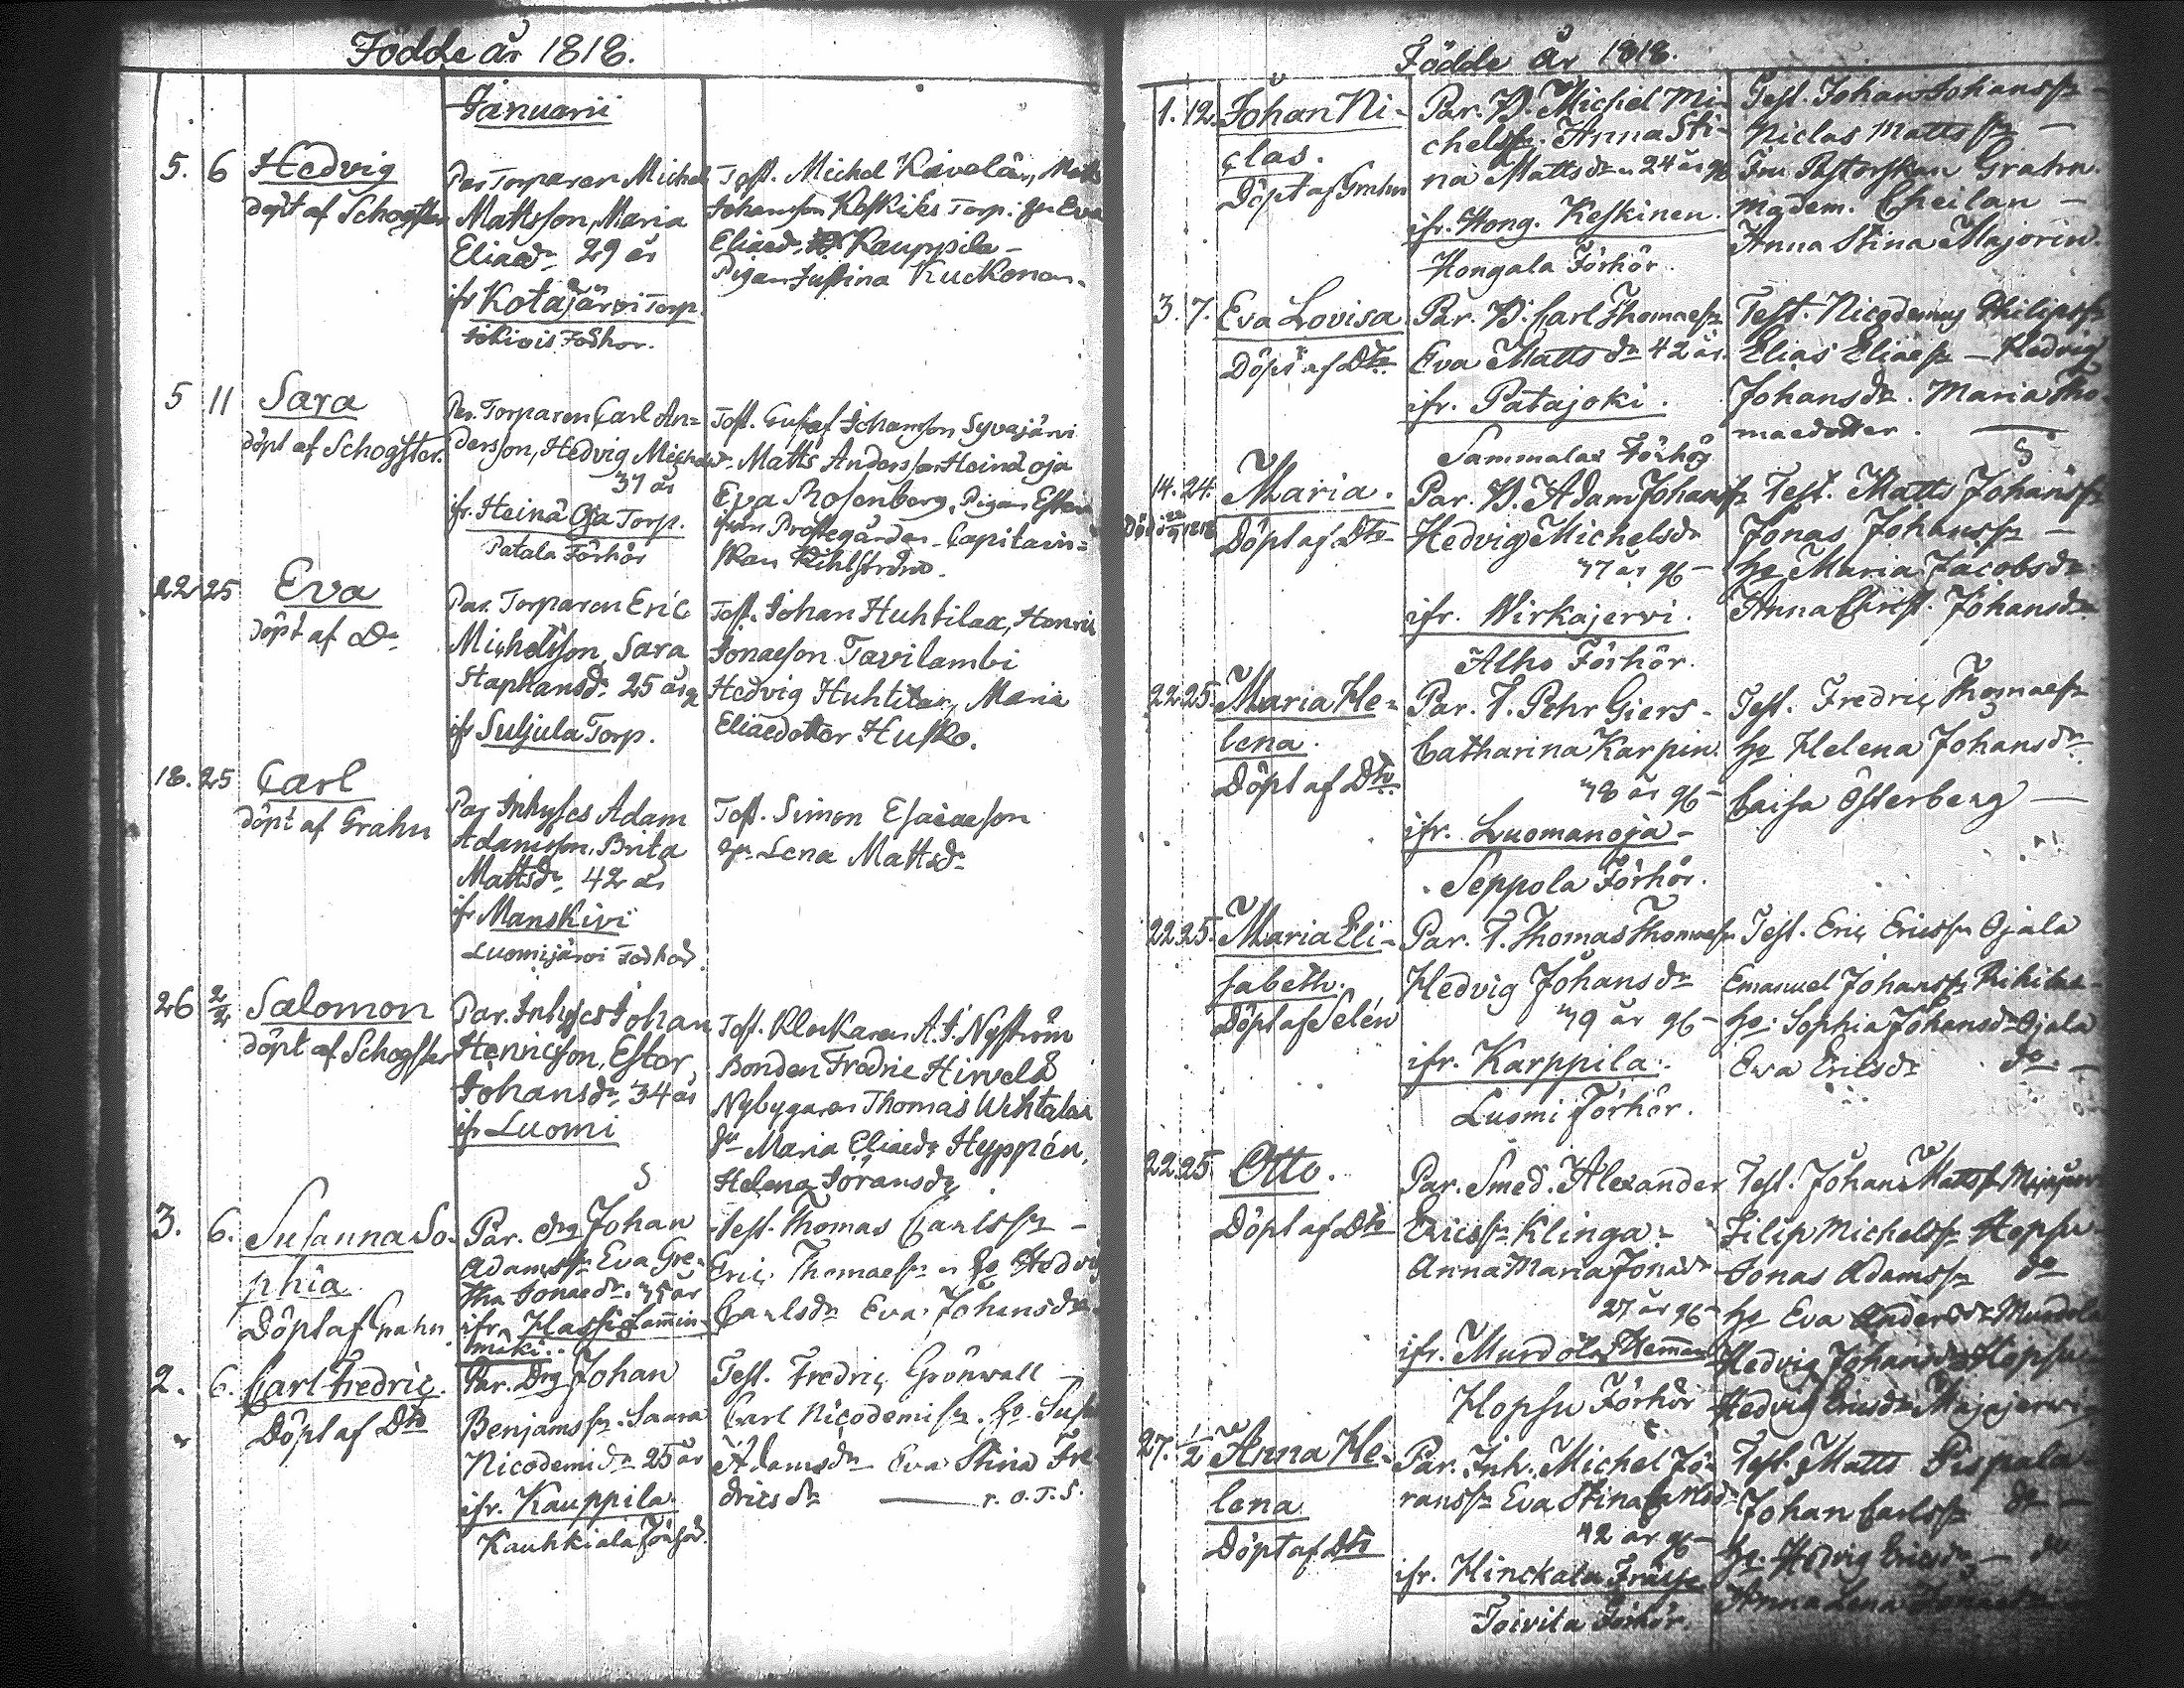 Födde år 1818.
Januarii
5. 6 Hedvig
döpt af Schogster
Par Torparen Michel
Mattsson, Maria
Eliaed. 29 år
ifr Kotajärvi Torp.
Förhör.
Test. Michel Kivelän, Matts
Johansson Keskikes Torp. Hu Eva
Eliaed. Kauppila –
Pigan Justina Kuckonen.
5 11 Sara
döpt af Schogster.
Par. Torparen Carl An=
dersson, Hedvig Michelsdr.
37 år
ifr. Heinä Oja Torp.
Patala Förhör
Test. Gustaf Johansson Syväjärvi
Matts Andersson Heinä oja
Eva Rosenberg, Pigan Ester
ifrån Prostegården – Capitain=
skan Kihlström.
22 25 Eva
döpt af Do
Par. Torparen Eric
Michelsson, Sara
Staphansdr. 25 år
ifr Suljula Torp.
Test. Johan Huhtilaa, Henric
Jonaeson Tavilambi
Hedvig Huhtilaa, Maria
Eliaedotter Husko.
18. 25 Carl
döpt af Grahn
Par Inhyses Adam
Adamsson, Brita
Mattsdr. 42 år
ifr Manskivi
Luomijärvi Förhör.
Test. Simon Esaiaeson
Hu. Lena Mattsdr
26 2/2 Salomon
döpt af Schogster
Par. Inhyses Johan
Henricson, Ester
Johansdr. 34 år
ifr Luomi
Test. Klockaren A. J. Nyström
Bonden Fredric Hirvelä
Nybygaren Thomas Wehtalaa
Hu Maria Eliaedr Hyppén,
Helena Göransdr
3. 6. Susanna So-
phia
Döpt af Grahn.
Par. Drg Johan
Adamssn Eva Gre-
tha Jonaedr. 35 år
ifr. Hassi Lammin-
mäki.
Test. Thomas Carlssn –
Eric Thomaesn Ho Hedvig
Carlsdr Eva Johansdr
2. 6. Carl Fredric.
Döpt af Dto
Par. Drg Johan
Benjamssn. Saara
Nicodemidr 25 år
ifr. Kauppila.
Kauhkiala Förhör.
Test. Fredric Grönwall –
Carl Nicodemisn. Ho Susa
Adamsdr Eva Stina Fre-
dricsdr — r. o. T. S.
Födde År 1818.
1. 12. Johan Ni-
clas.
Döpt af Grahn
Par. B. Michel Mi-
chelssn. Anna Sti-
na Mattsdr 24 år gl
ifr. Hong. Keskinen.
Hongala Förhör.
Test. Johan Johanssn –
Niclas Mattssn –
Fru Pastorskan Grahn.
Madem. Cheilan –
Anna Stina Majorin.
3. 7. Eva Lovisa
Döpt af Dto
Par. B. Carl Thomaesn
Eva Mattsdr 42 år.
ifr. Patajoki.
Sammalas Förhör
Test. Nicodemus Philipssn
Elias Eliaesn – Hedvig
Johansdr. Maria Tho-
maedotter. —
14. 24. Maria.
Döpt af Dto
Par. B. Adam Johanssn
Hedvig Michelsdr
37 år gl –
ifr. Wirkajervi.
Alho Förhör.
Test. Matts Johanssn
Jonas Johanssn –
Ho Maria Jacobsdr
Anna Christ. Johansdr
22. 25. Maria He-
lena.
Döpt af Dto
Par. T. Pehr Giers –
Catharina Karpin.
38 år gl –
ifr. Luomanoja –
Seppola Förhör.
Test. Fredric Thomaesn
Ho Helena Johansdr
Caisa Österberg —
22. 25. Maria Eli-
sabeth.
Döpt af Selén
Par. T. Thomas Thomaesn
Hedvig Johansdr
39 år gl –
ifr. Karppila.
Luomi Förhör.
Test. Eric Ericssn Ojala
Emanuel Johanssn
Ho. Sophia Johansdr Ojala
Eva Ericsdr do. –
22. 25 Otto.
Döpt af Dto
Par. Smed. Alexander
Ericssn Klinga –
Anna Maria Jonaedr
27 år gl –
ifr. Murdola Hemman
Hopsu Förhör
Test. Johan Mattssn
Filip Michelssn Hopsu
Jonas Adamssn do
Ho Eva Andersdr Murdola
Hedvig Johansdr Hopsu
Hedvig Ericsdr Majajervi
27. 1/2 Anna He-
lena
Döpt af Dto
Par. Inh. Michel Jö-
ranssn Eva Stina Carlsdr
42 år gl –
ifr. Hinckala Frälse
Toivila Förhör.
Test. Matts Pispala
Johan Carlssn do –
Ho. Hedvig Ericsdr – do
Anna Lena